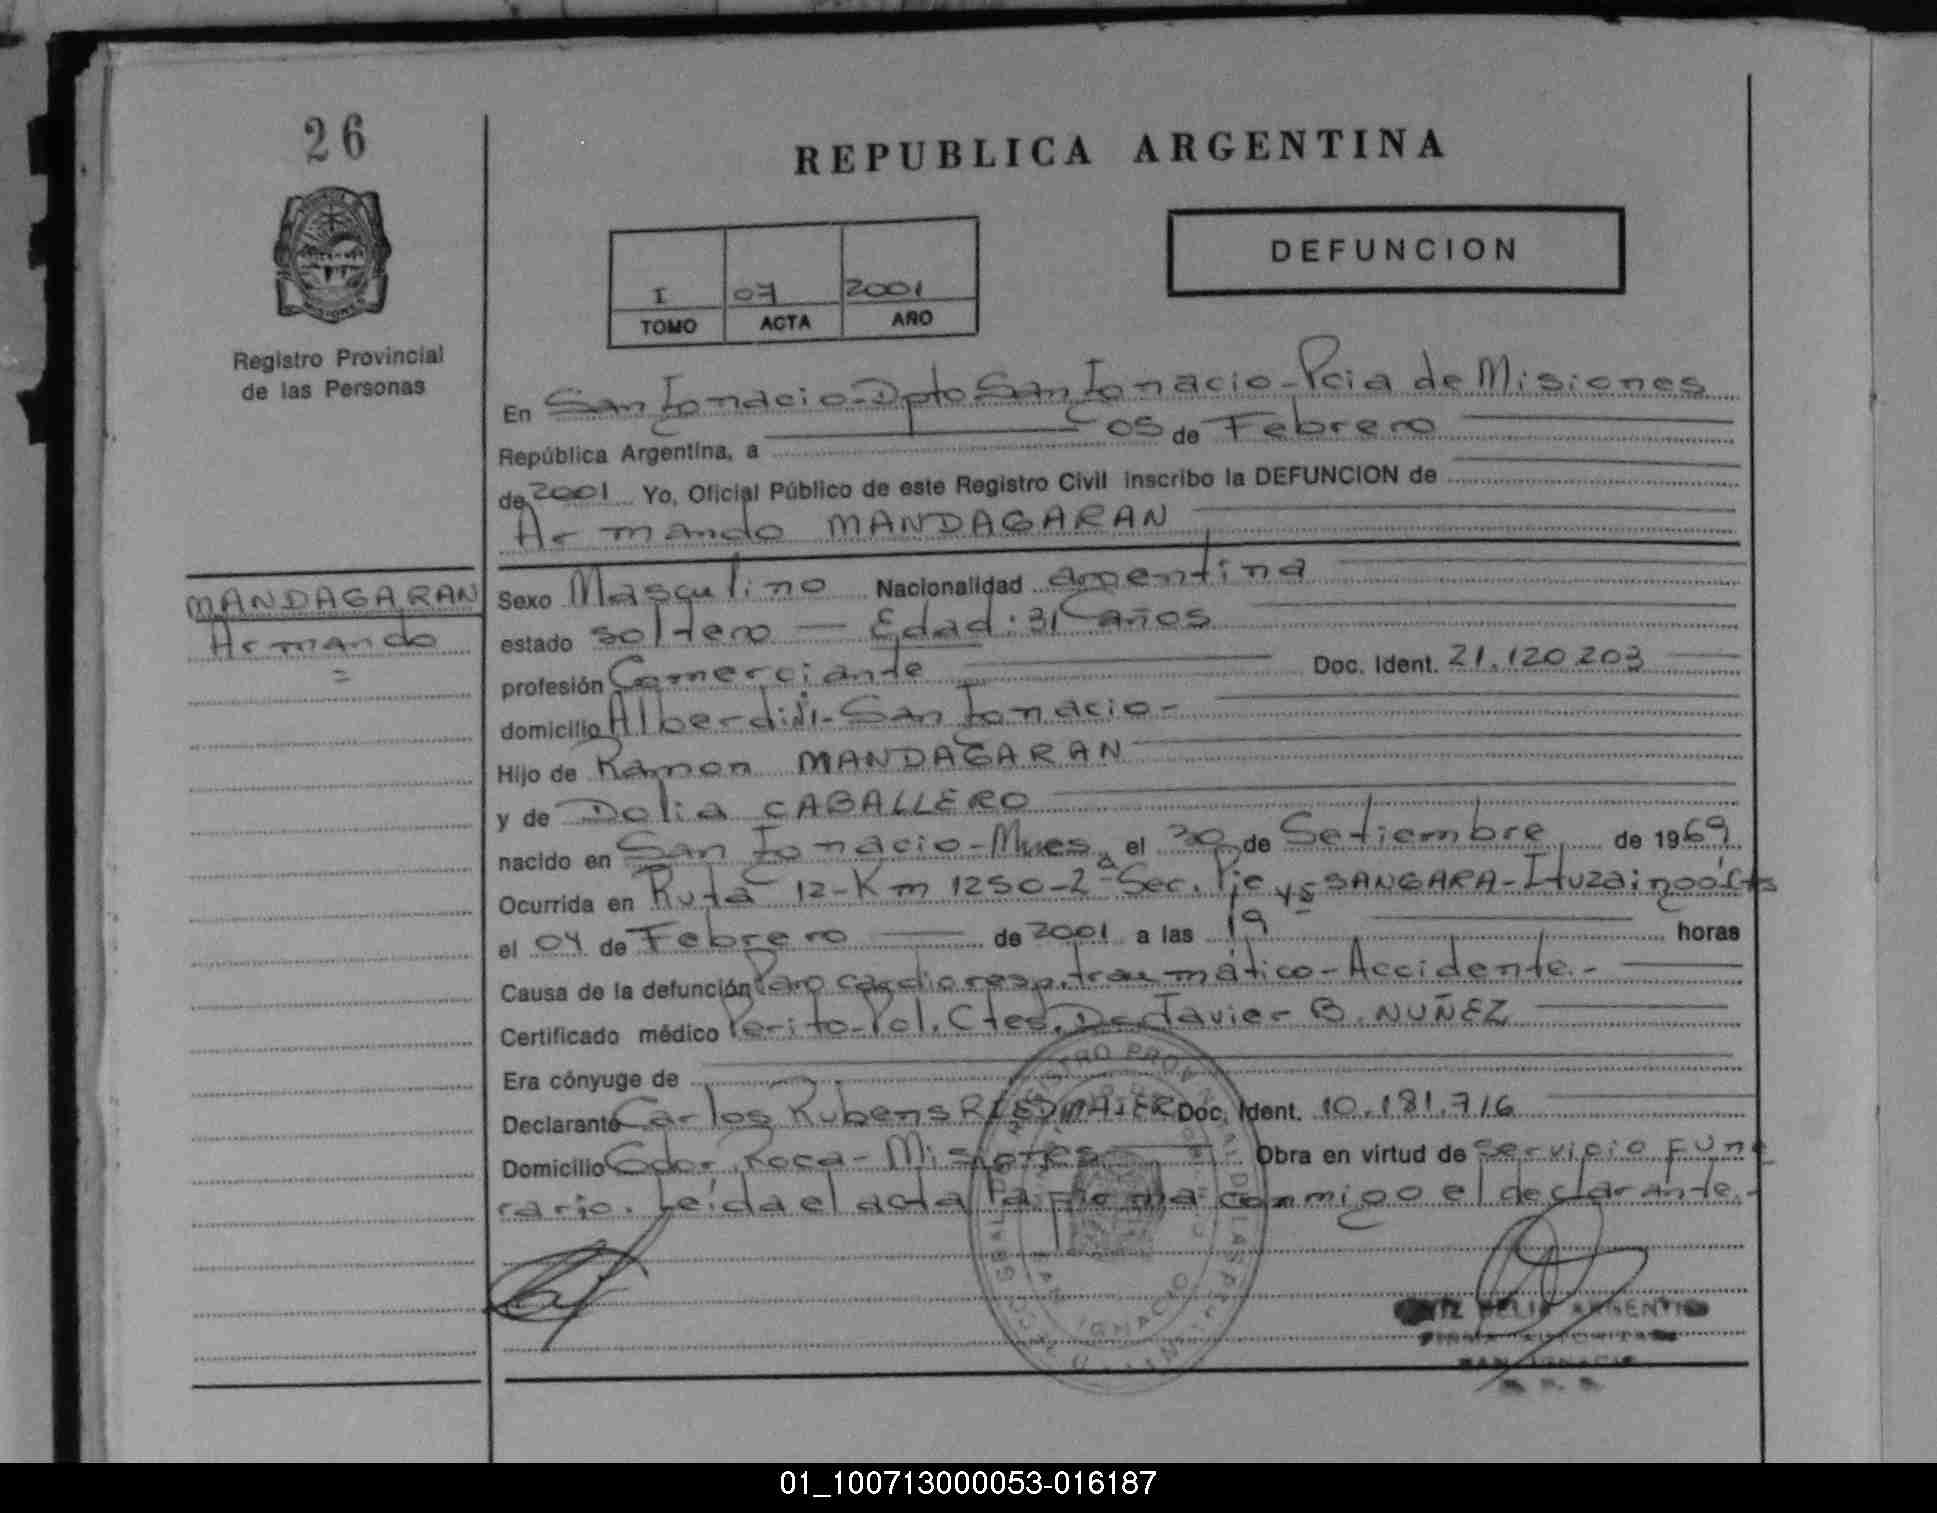 26
REPUBLICA ARGENTINA
DEFUNCION
I 07 2001
TOMO ACTA AÑO
Registro Provincial
de las Personas
En San Ignacio-Dpto San Ignacio-Pcia de Misiones
República Argentina, a 05 de Febrero
de 2001 Yo, Oficial Público de este Registro Civil inscribo la DEFUNCION de
Armando MANDAGARAN
MANDAGARAN
Armando
Sexo Masculino Nacionalidad argentina
estado soltero — Edad: 31 años
profesión Comerciante Doc. Ident. 21.120.203
domicilio Alberdi - San Ignacio-
Hijo de Ramon MANDAGARAN
y de Dolia CABALLERO
nacido en San Ignacio-Mnes el 30 de Setiembre de 1969
Ocurrida en Ruta 12-Km 1250-2ª Sec. Pje SANGARA-Ituzaingó Cts
el 04 de Febrero de 2001 a las 19 horas
Causa de la defunción Paro cardioresp. traumático-Accidente.-
Certificado médico Perito-Pol. Ctes. Dr Javier B. NUÑEZ
Era cónyuge de
Declarante Carlos Rubens Doc. Ident. 10.181.716
Domicilio Gdor. Roca-Misiones Obra en virtud de servicio fune
rario. Leída el acta la firma conmigo el declarante.-
SAN IGNACIO
01_100713000053-016187